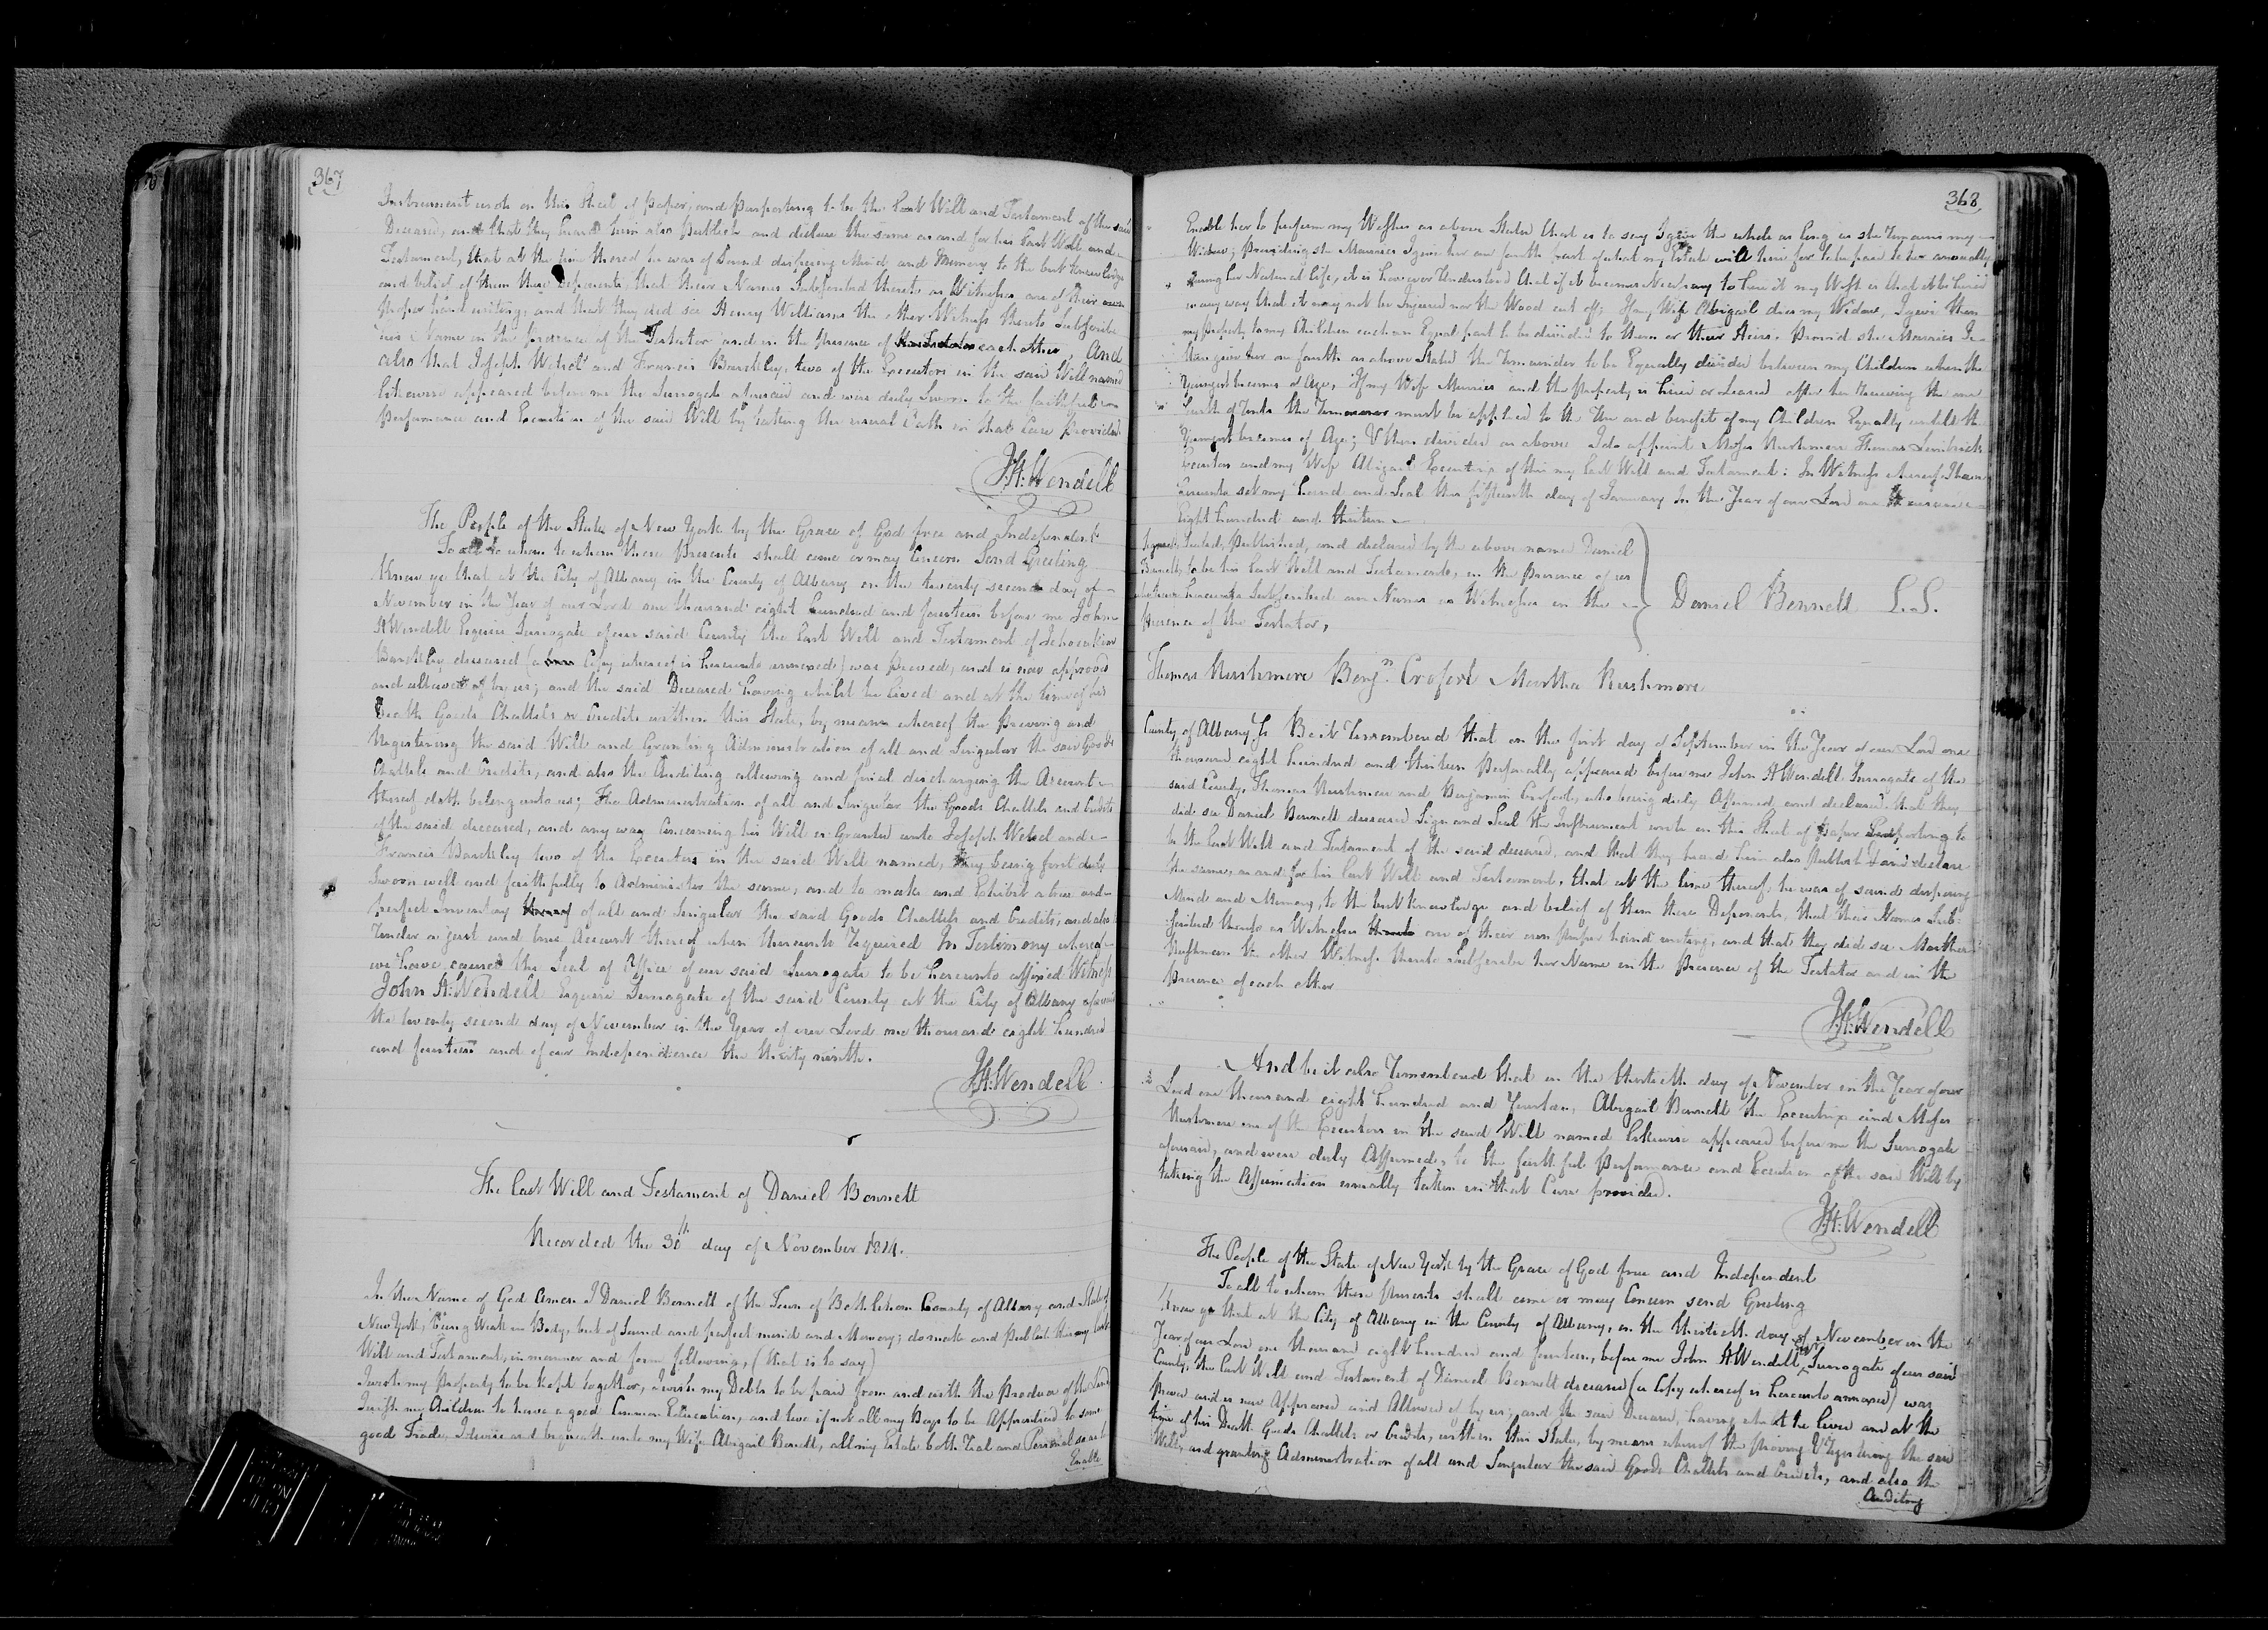 367
Instrument wrote on this Sheet of paper, and purporting to be the last Will and Testament of the said
Deceased, and that they heard him also Publish and declare the same as and for his Last Will and
Testament, that at the time thereof he was of Sound disposing Mind and Memory to the best knowledge
and belief of them these deponents, that their Names Subscribed thereto as Witnesses are of their own
proper hand writing, and that they did see Henry Williams the other Witness thereto Subscribe
his Name in the presence of the Testator and in the presence of each other, And
also that Joseph and Francis Barckley, two of the Executors in the said Will named
likewise appeared before me the Surrogate aforesaid and were duly Sworn to the faithful
performance and Execution of the said Will by taking the usual Oath in that Case provided
J.A. Wendell
The People of the State of New York by the Grace of God free and Independent
To all to whom to whom these Presents shall come or may Concern Send Greeting
Know ye that at the City of Albany in the County of Albany on the twenty second day of
November in the Year of our Lord one thousand eight hundred and fourteen before me John
A Wendell Esquire Surrogate of our said County the last Will and Testament of Jehoiakim
Barckley deceased (a Copy whereof is hereunto annexed) was proved, and is now approved
and allowed of by us; and the said Deceased having whilst he lived and at the time of his
Death Goods Chattels or Credits within this State, by means whereof the proving and
Registering the said Will and Granting Administration of all and Singular the said Goods
Chattels and Credits, and also the Auditing allowing and final discharging the Account
thereof doth belong unto us; The Administration of all and Singular the Goods Chattels and Credits
of the said deceased, and any way Concerning his Will is Granted unto Joseph and
Francis Barckley two of the Executors in the said Will named, they being first duly
Sworn well and faithfully to Administer the same, and to make and Exhibit a true and
perfect Inventory thereof of all and Singular the said Goods Chattels and Credits, and also
Render a just and true Account thereof when thereunto required In Testimony whereof
we have caused the Seal of Office of our said Surrogate to be hereunto affixed Witness
John A. Wendell Esquire Surrogate of the said County at the City of Albany aforesaid
the twenty second day of November in the Year of our Lord one thousand eight hundred
and fourteen and of our Independence the thirty ninth.
J.A. Wendell
The last Will and Testament of Daniel Bennett
Recorded the 30th day of November 1814.
In the Name of God Amen I Daniel Bennett of the Town of Bethlehem County of Albany and State of
New York, being Weak in Body, but of Sound and perfect mind and Memory; do make and publish this my last
Will and Testament, in manner and form following, (that is to say)
I wish my Property to be kept together, I wish my Debts to be paid from and with the produce of the Land
I wish my Children to have a good Common Education, and two if not all my Boys to be Apprenticed to some
good Trade, I devise and bequeath unto my Wife Abigail Benett, all my Estate both Real and Personal so as to
Enable
368
Enable her to perform my Wishes as above Stated that is to say I give the whole as long as she remains my
Widow; Providing she Marries I give her one fourth part of what my Estate will hire for to be paid to her annually
during her Natural life, it is however Understood that if it becomes Necessary to hire it my Wish is that it be hired
in any way that it may not be Injured nor the Wood cut off; If my Wife Abigail dies my Widow, I give then
my property to my Children each an Equal part to be divided to them or their Heirs. Provided she Marries I
give her one fourth as above Stated the remainder to be Equally divided between my Children when the
Youngest becomes of Age, If my Wife Marries and the property is hired or leased after her receiving the one
fourth of rents the remainder must be applied to the Use and benefit of my Children Equally untill the
Youngest becomes of Age; & then divided as above I do appoint Moses Rushmore Thomas
Executors and my Wife Abigail Executrix of this my last Will and Testament: In Witness whereof I have
hereunto set my hand and Seal this fifteenth day of January In the Year of our Lord one thousand
Eight hundred and thirteen
Signed, Sealed, Published, and declared by the above named Daniel
Bennett, to be his Last Will and Testament, in the presence of us
who have hereunto Subscribed our Names as Witnesses in the
presence of the Testator,
Daniel Bennett L.S.
Thomas Rushmore Benjn. Croford Martha Rushmore
County of Albany Ss Be it remembered that on the first day of September in the Year of our Lord one
thousand eight hundred and thirteen Personally appeared before me John A Wendell Surrogate of the
said County, Thomas Rushmore and Benjamin Croford, who being duly Affirmed, and declared that they
did see Daniel Bennett deceased Sign and Seal the Instrument wrote on this Sheet of paper Purporting to
be the Last Will and Testament of the said deceased, and that they heard him also Publish & and declare
the same, as and for his Last Will and Testament, that at the time thereof he was of sound disposing
Mind and Memory, to the best knowledge and belief of them these Deponents, that their Names Sub-
scribed thereto as Witnesses thereto are of their own proper hand writing, and that they did see Martha
Rushmore the other Witness thereto Subscribe her Name in the presence of the Testator and in the
presence of each other
J.A. Wendell
And be it also remembered that on the thirtieth day of November in the Year of our
Lord one thousand eight hundred and fourteen, Abigail Bennett the Executrix and Moses
Rushmore one of the Executors in the said Will named likewise appeared before me the Surrogate
aforesaid, and were duly Affirmed, to the faithful performance and Execution of the said Will by
taking the Affirmation usually taken in that Case provided.
J.A. Wendell
The People of the State of New York by the Grace of God free and Independent
To all to whom these presents shall come or may Concern send Greeting
Know ye that at the City of Albany in the County of Albany, on the thirtieth day of November in the
Year of our Lord one thousand eight hundred and fourteen, before me John A Wendell Surrogate of our said
County, the Last Will and Testament of Daniel Bennett deceased (a Copy whereof is hereunto annexed) was
proved and is now Approved and Allowed of by us; and the said Deceased, having whilst he lived and at the
time of his Death Goods Chattels or Credits, within this State, by means whereof the proving & registering the said
Will, and granting Administration of all and Singular the said Goods Chattels and Credits, and also the
Auditing